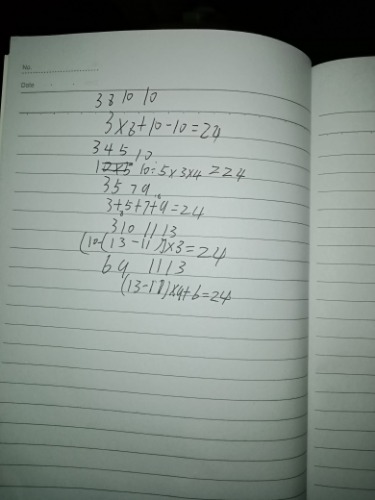 No.
Date
3 8 10 10
3×8+10-10=24
3 4 5 10
10÷5×3×4=24
3 5 7 9
3+5+7+9=24
3 10 11 13
(10-(13-11))×3=24
6 9 11 13
(13-11)×9+6=24